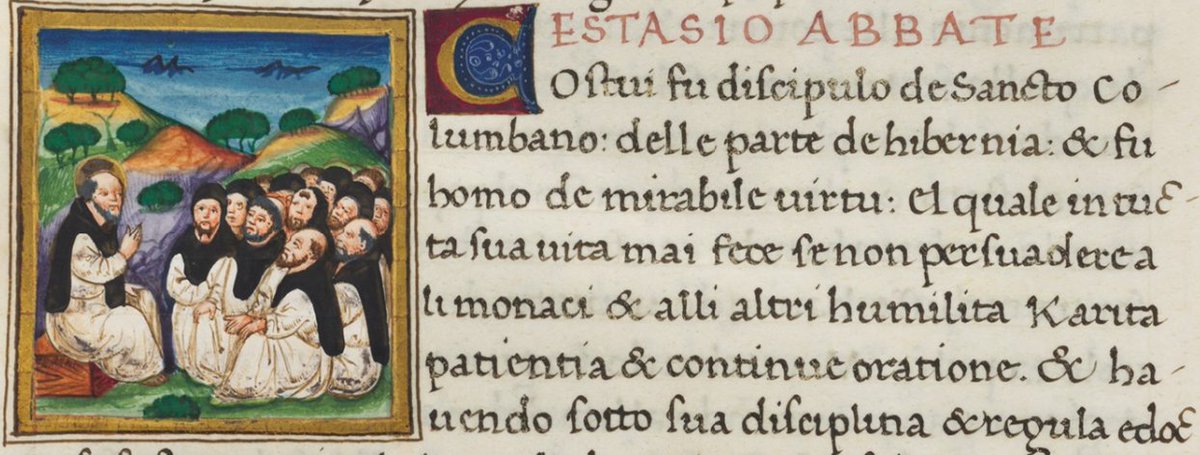 ESTASIO ABBATE
Costui fu discipulo de Sancto Co-
lumbano: delle parte de hibernia: & fu
homo de mirabile uirtu: el quale in tuc̄-
ta sua uita mai fece se non persuadere a
li monaci & alli altri humilita Karita
patientia & continue oratione. & ha-
uendo sotto sua disciplina & regula edoc̄